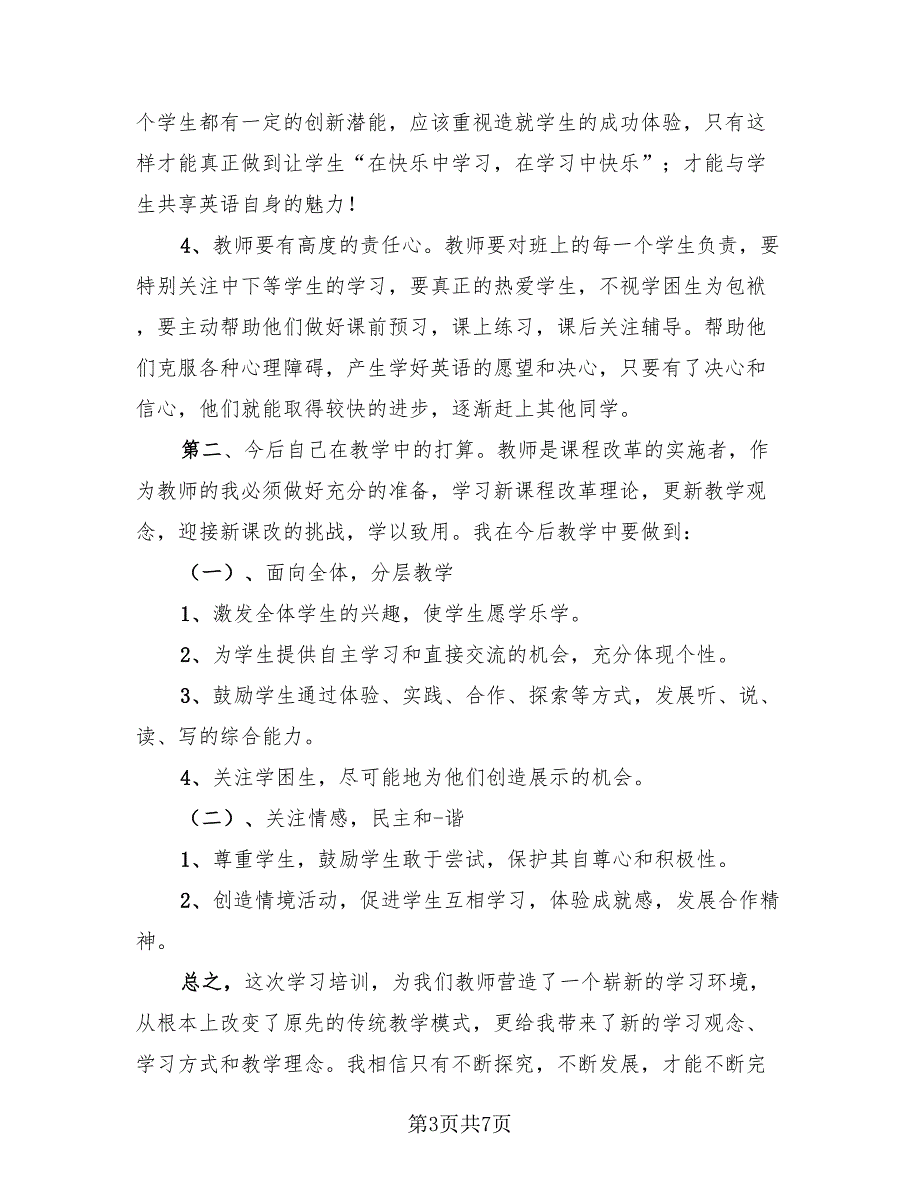 个学生都有一定的创新潜能，应该重视造就学生的成功体验，只有这
样才能真正做到让学生“在快乐中学习，在学习中快乐”；才能与学
生共享英语自身的魅力！
4、教师要有高度的责任心。教师要对班上的每一个学生负责，要
特别关注中下等学生的学习，要真正的热爱学生，不视学困生为包袱
，要主动帮助他们做好课前预习，课上练习，课后关注辅导。帮助他
们克服各种心理障碍，产生学好英语的愿望和决心，只要有了决心和
信心，他们就能取得较快的进步，逐渐赶上其他同学。
第二、今后自己在教学中的打算。教师是课程改革的实施者，作
为教师的我必须做好充分的准备，学习新课程改革理论，更新教学观
念，迎接新课改的挑战，学以致用。我在今后教学中要做到：
（一）、面向全体，分层教学
1、激发全体学生的兴趣，使学生愿学乐学。
2、为学生提供自主学习和直接交流的机会，充分体现个性。
3、鼓励学生通过体验、实践、合作、探索等方式，发展听、说、
读、写的综合能力。
4、关注学困生，尽可能地为他们创造展示的机会。
（二）、关注情感，民主和-谐
1、尊重学生，鼓励学生敢于尝试，保护其自尊心和积极性。
2、创造情境活动，促进学生互相学习，体验成就感，发展合作精
神。
总之，这次学习培训，为我们教师营造了一个崭新的学习环境，
从根本上改变了原先的传统教学模式，更给我带来了新的学习观念、
学习方式和教学理念。我相信只有不断探究，不断发展，才能不断完
第3页共7页